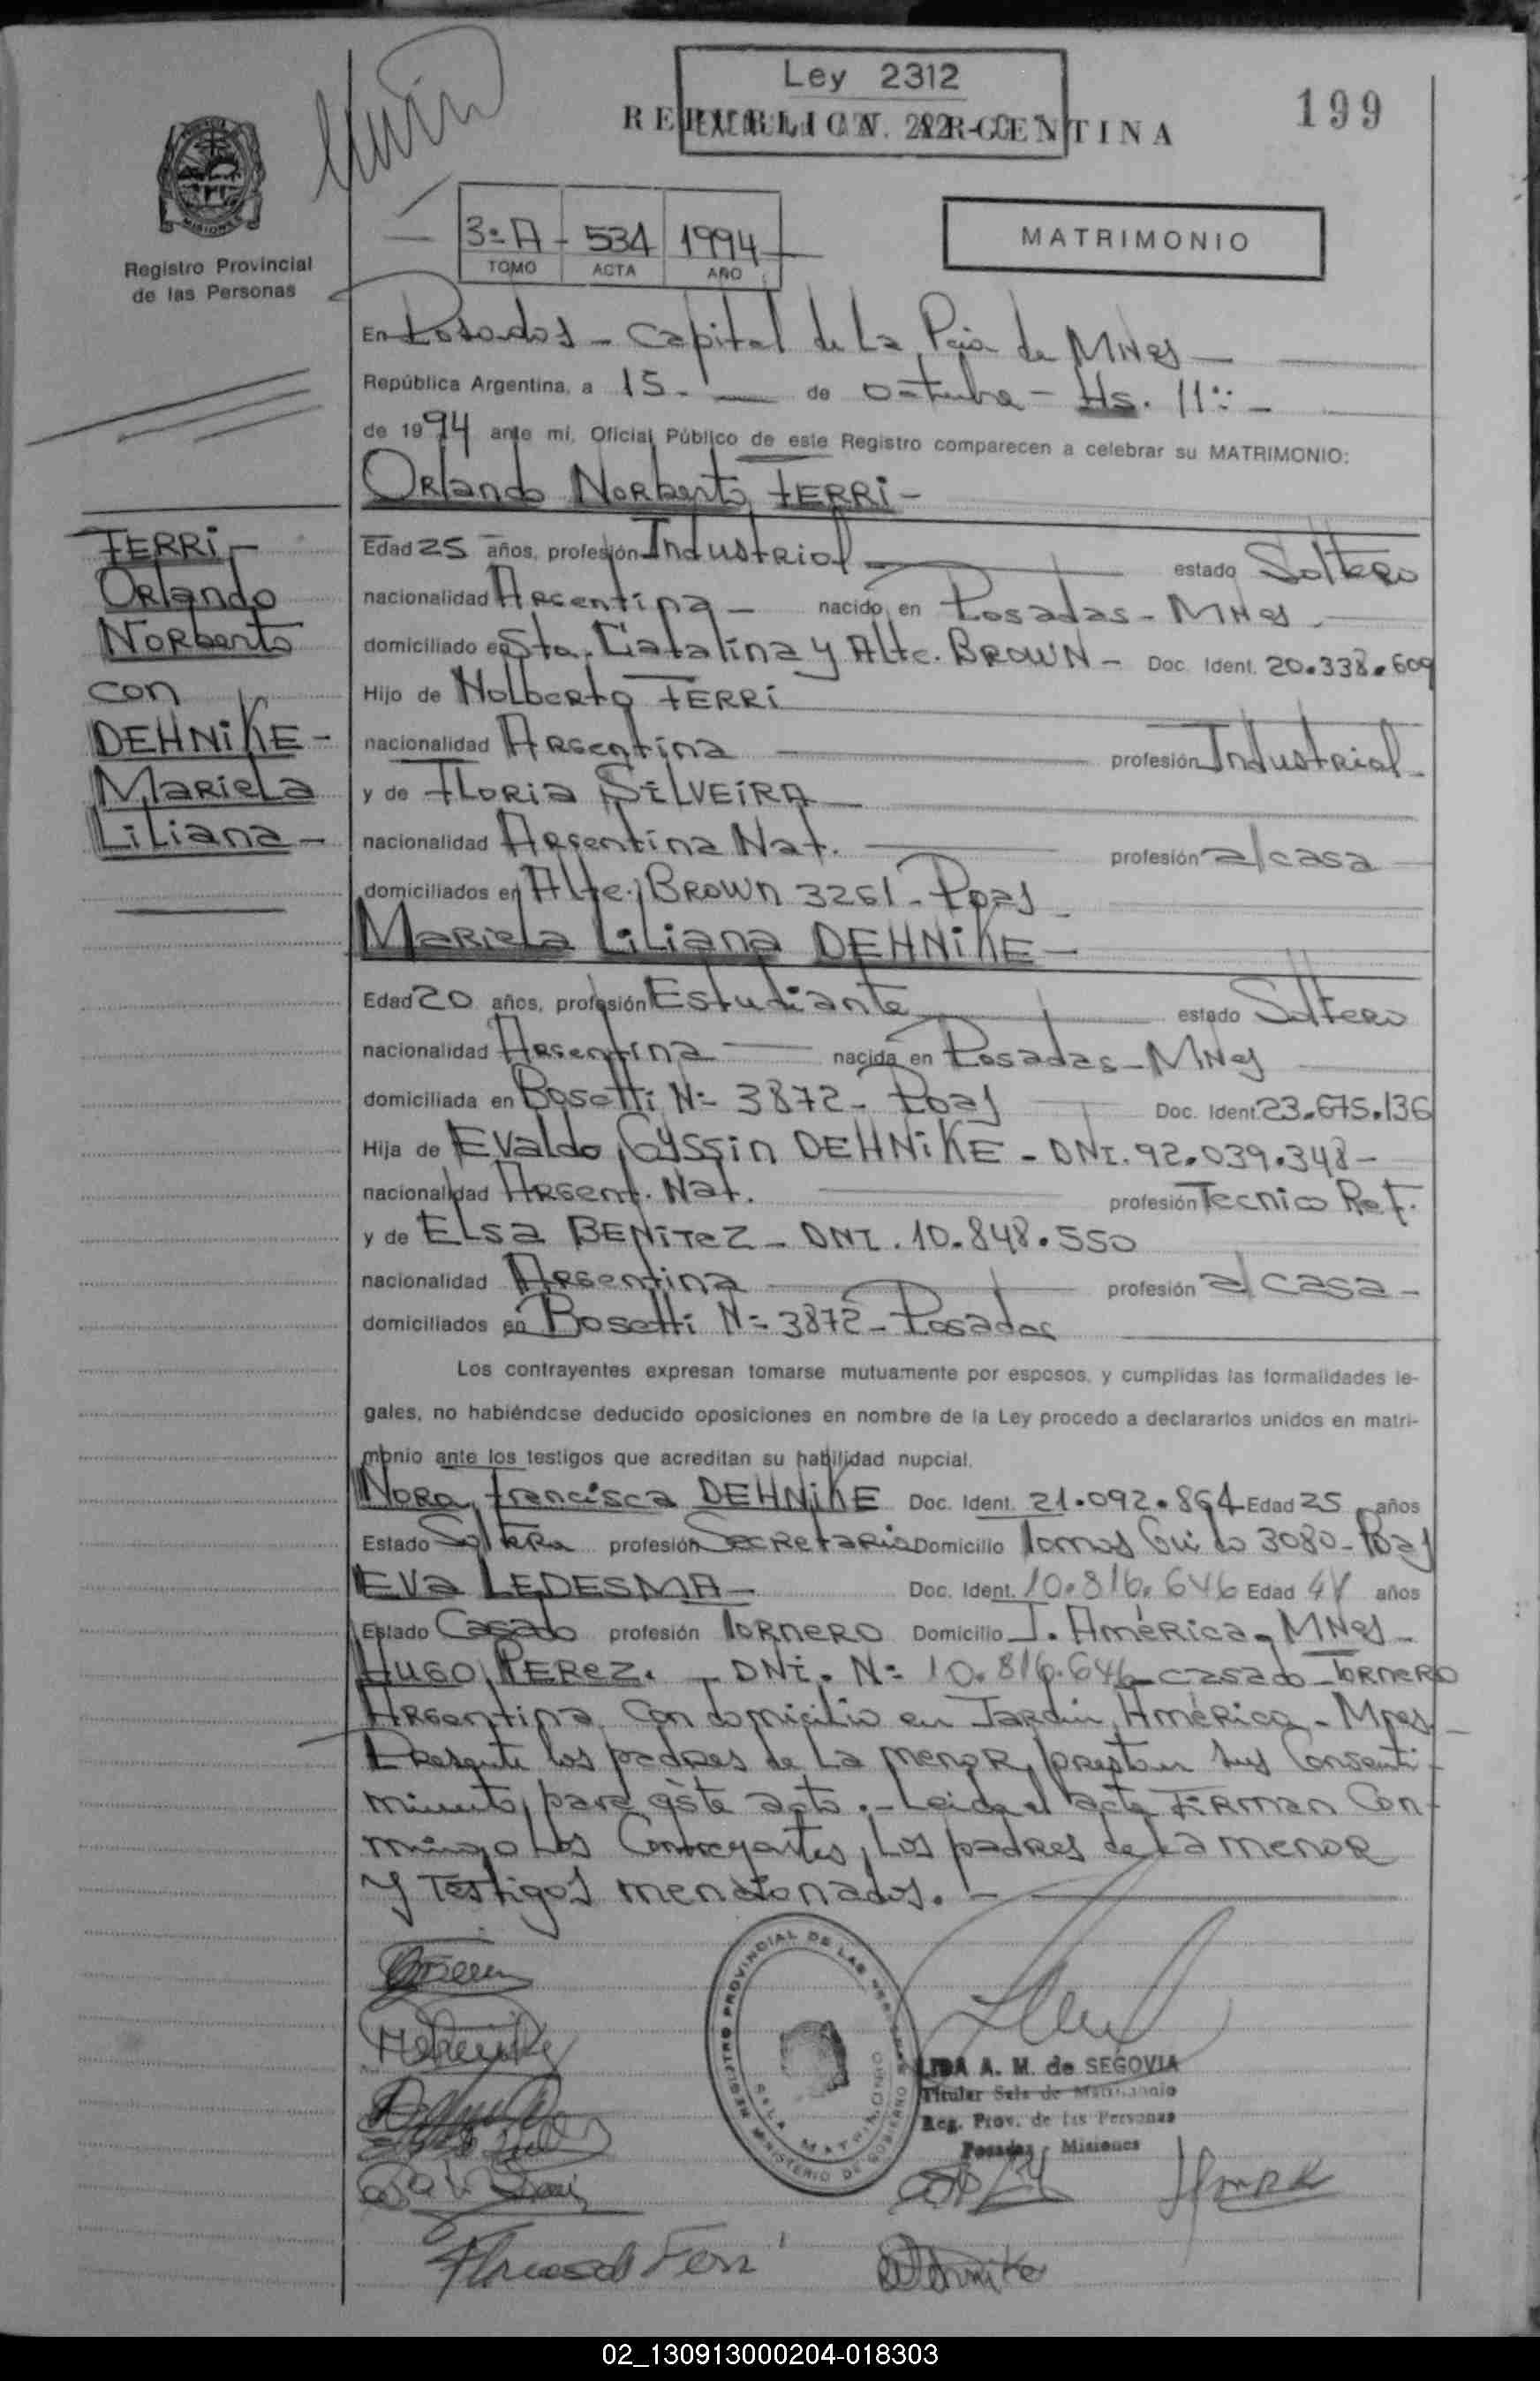 Ley 2312
REPUBLICA ARGENTINA
199
MISIONES
Registro Provincial
de las Personas
3º A - 534 1994
TOMO ACTA AÑO
MATRIMONIO
En Posadas - Capital de La Pcia de MNes -
República Argentina, a 15.- de octubre - Hs. 11:: -
de 1994 ante mí, Oficial Público de este Registro comparecen a celebrar su MATRIMONIO:
Orlando Norberto FERRI -
FERRI -
Orlando
Norberto
con
DEHNIKE -
Mariela
Liliana -
Edad 25 años, profesión Industrial estado Soltero
nacionalidad Argentina - nacido en Posadas - MNes
domiciliado en Sta. Catalina y Alte. BROWN - Doc. Ident. 20.338.609
Hijo de Nolberto FERRI
nacionalidad Argentina profesión Industrial -
y de Floria SILVEIRA
nacionalidad Argentina Nat. profesión a/casa
domiciliados en Alte. BROWN 3261 - Pdas -
Mariela Liliana DEHNIKE -
Edad 20 años, profesión Estudiante estado Soltero
nacionalidad Argentina nacida en Posadas - MNes
domiciliada en Bosetti Nº 3872 - Pdas Doc. Ident. 23.675.136
Hija de Evaldo Gyssin DEHNIKE - DNI. 92.039.348 -
nacionalidad Argent. Nat. profesión Tecnico Ref.
y de Elsa BENITEZ - DNI. 10.848.550
nacionalidad Argentina profesión a/casa -
domiciliados en Bosetti Nº 3872 - Posadas
Los contrayentes expresan tomarse mutuamente por esposos, y cumplidas las formalidades le-
gales, no habiéndose deducido oposiciones en nombre de la Ley procedo a declararlos unidos en matri-
monio ante los testigos que acreditan su habilidad nupcial.
Nora Francisca DEHNIKE Doc. Ident. 21.092.864 Edad 25 años
Estado Soltera profesión Secretaria Domicilio Tomas Guido 3080 - Pdas
Eva LEDESMA - Doc. Ident. 10.816.646 Edad 41 años
Estado Casado profesión Tornero Domicilio J. América - MNes -
Hugo PEREZ. - DNI. Nº 10.816.646 casado - Tornero
Argentina, con domicilio en Jardin América - Mnes -
Presente los padres de La menor, prestan sus Consenti-
miento, para éste acto. - Leida el acta FIRMAN Con-
migo Los Contrayentes, Los padres de La menor
y Testigos mencionados. -
REGISTRO PROVINCIAL DE LAS PERSONAS
MINISTERIO DE GOBIERNO
SALA MATRIMONIO
LIDA A. M. de SEGOVIA
Titular Sala de Matrimonio
Reg. Prov. de las Personas
Posadas - Misiones
02_130913000204-018303